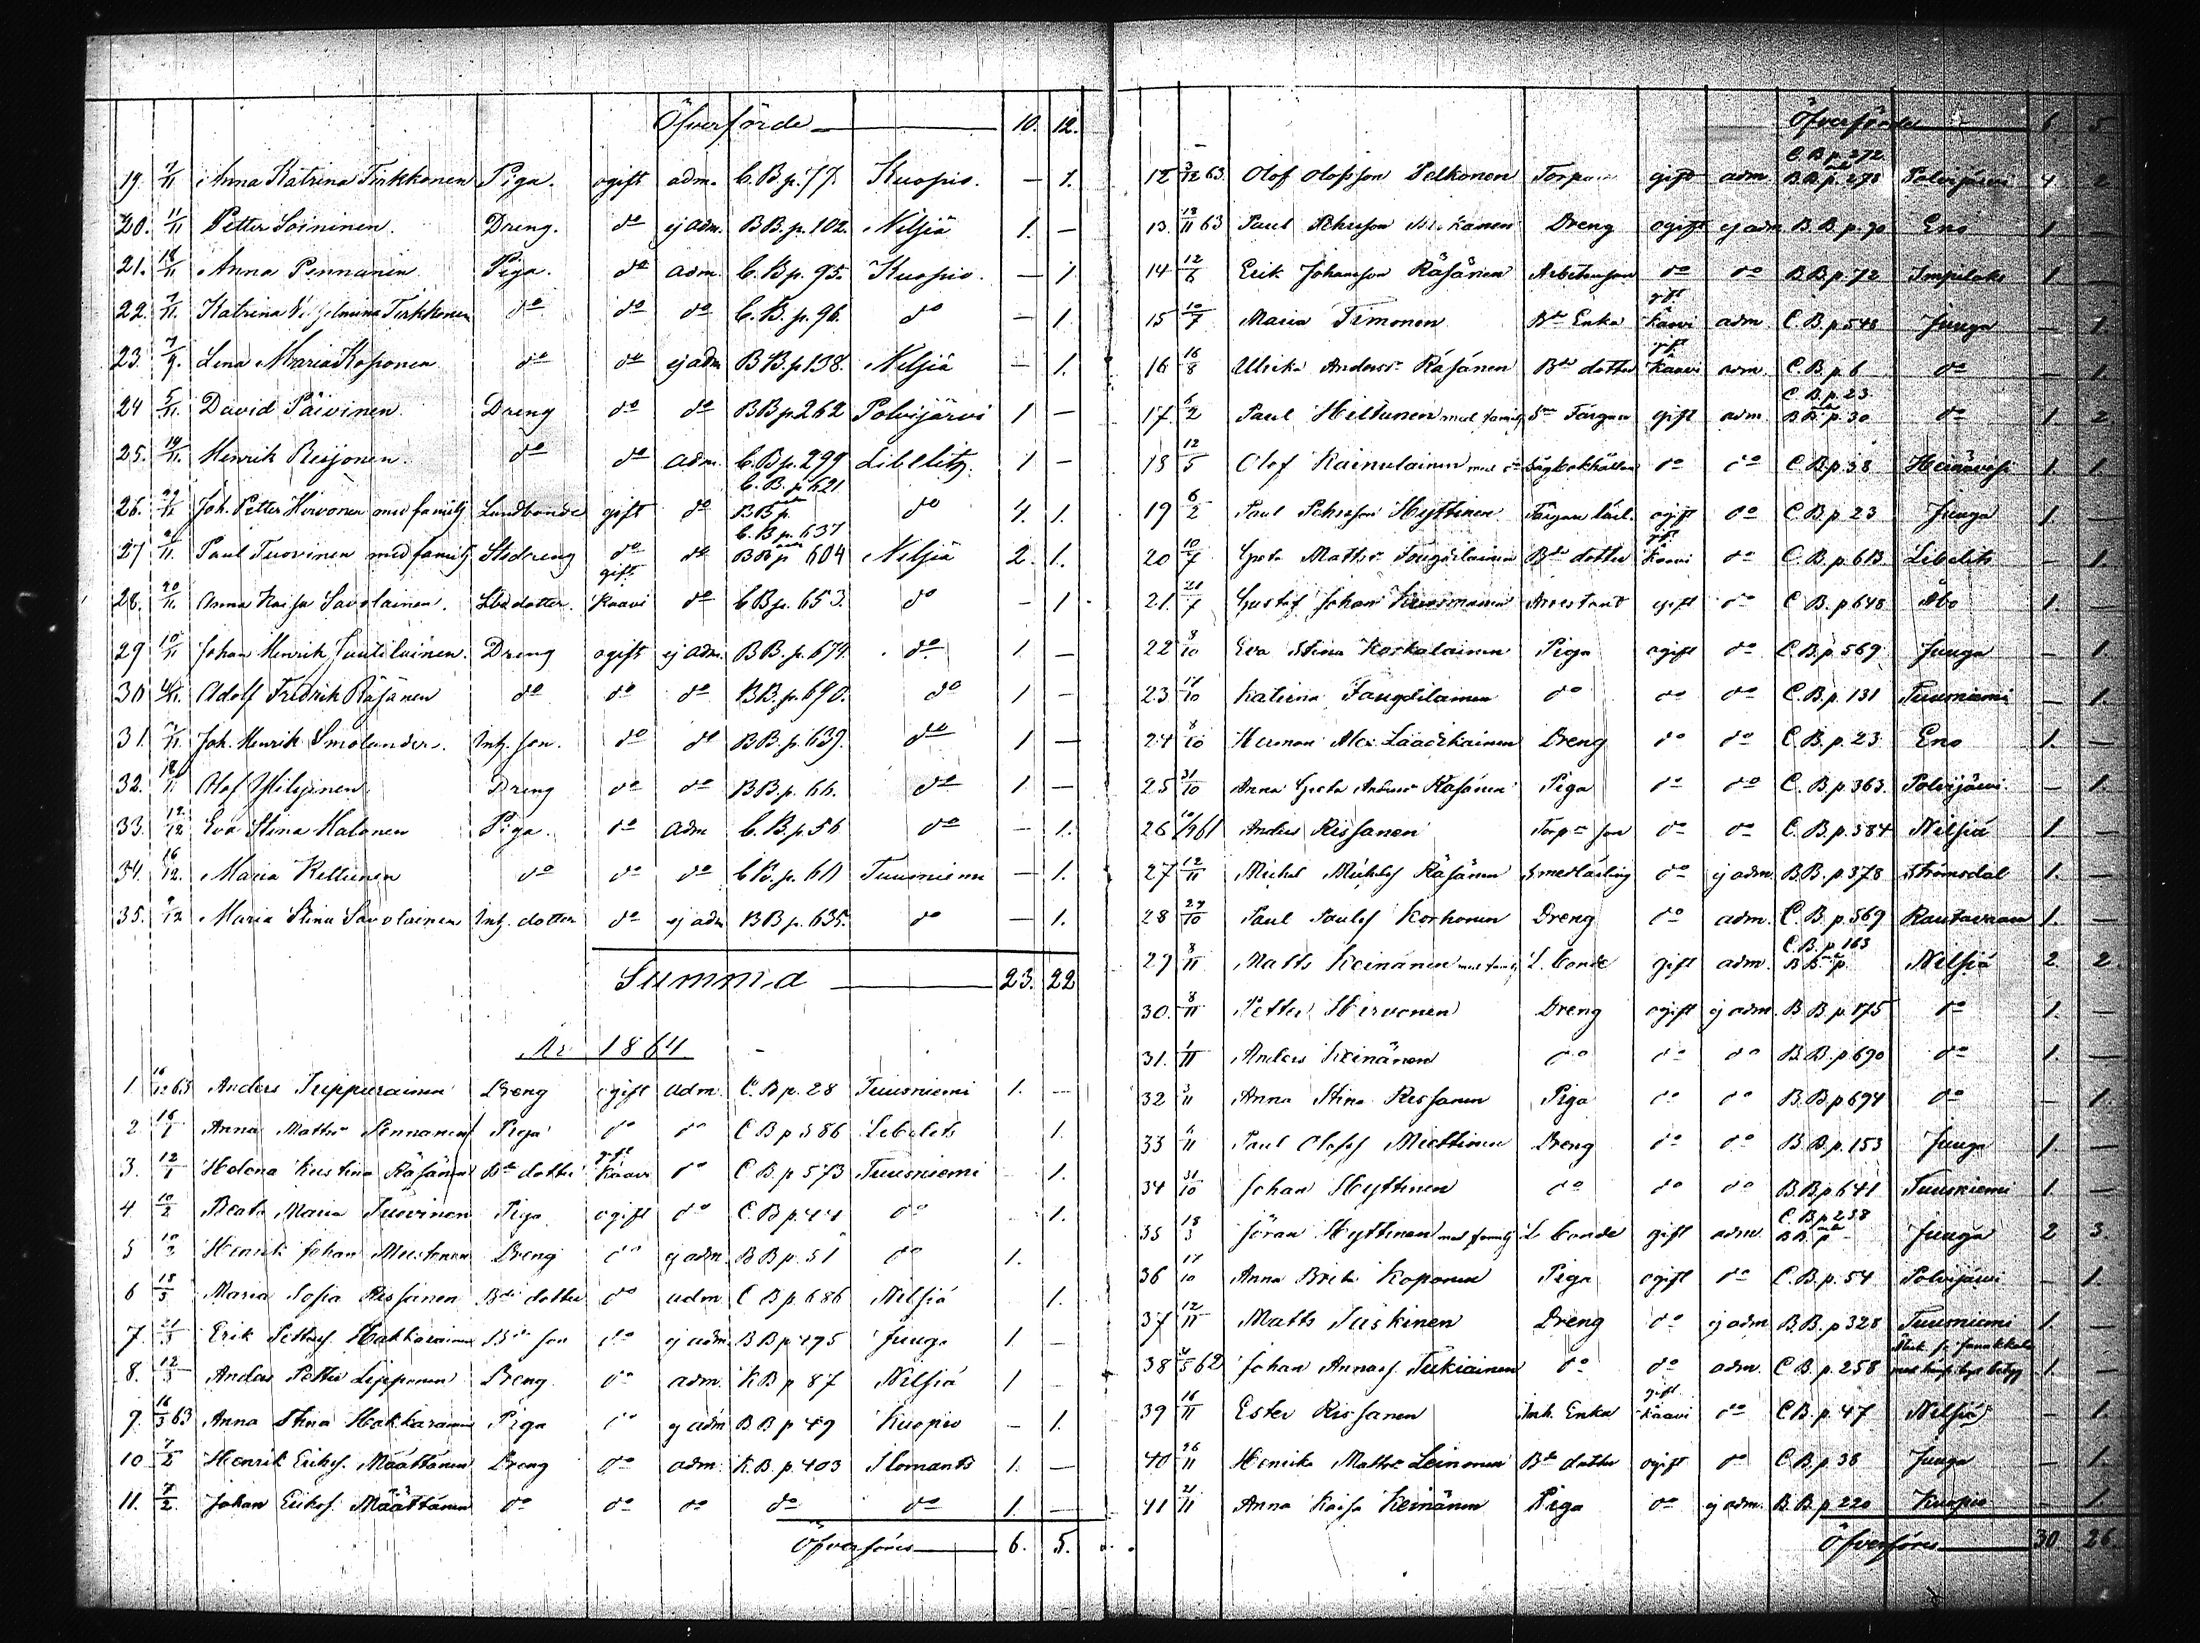 Öfverförde — 10. 12.
19. 7/11 Anna Katrina Tirkkonen Piga. ogift adm. C.B.p.77. Kuopio. — 1.
20. 11/11 Petter Soininen. Dreng. do ej adm. BB.p.102. Nilsiä 1. —
21. 18/11 Anna Pennanen Piga. do adm. C.B.p.95. Kuopio. — 1
22. 7/11 Katrina Vilhelmina Tirkkonen do do do C.B.p.96. do — 1
23. 7/9. Lena Maria Koponen do do ej adm BB.p.138. Nilsiä — 1.
24 5/11. David Päivinen. Dreng do do BBp262 Polvijärvi 1 —
25. 14/11. Henrik Reijonen. do do adm. C.B.p.299 Libelitz. 1 —
C.B.p621
26. 22/11 Joh. Petter Hirvonen med familj Landbonde gift do BBp. do 4. 1.
C.B.p.637
27 /11. Paul Tuovinen med familj Stedreng do do BBp 604 Nilsiä 2. 1.
gift
28. 20/11. Anna Kaisa Savolainen. Lbd dotter. Kaavi do CBp.653. do — 1
29 10/11 Johan Henrik Juutilainen. Dreng ogift ej adm. BB.p.674. do 1 —
30 /11. Adolf Fredrik Räsänen do do do BB.p.690. do 1 —
31. /11 Joh. Henrik Smolander. Inh. son. do do BB.p.639. do 1 —
32. Olof Dreng do do BB.p.66. do 1 —
33. 12/12 Eva Stina Halonen Piga. do adm C.B.p.56 do — 1.
34. 16/12. Maria Kettunen do do do C.B.p.611 Tuusniemi — 1.
35. 9/12 Maria Stina Savolainen Inh. dotter do ej adm BBp.635. do — 1.
Summa — 23. 22
År 1864
1. 16/12 63 Anders Tuppurainen Dreng ogift adm. C.Bp.28 Tuusniemi 1. —
2. 16/1 Anna Mattsr Pennanen Piga do do C B p 386 Libelits 1.
gift
3. 12/1 Helena Kristina Räsänen Bde dotter Kaavi do C B p 573 Tuusniemi 1.
4. 10/2 Beata Maria Tuovinen Piga ogift do C.Bp.44 do 1.
5 10/2 Henrik Johan Mustonen Dreng do ej adm. BBp.51 do 1.
6 18/3 Maria Sofia Rissanen Bde dotter do adm C Bp.686 Nilsiä 1.
7. 21/3 Erik Petters. Hakkarainen Bde son do ej adm BBp495 Juuga 1 —
8. 12/3 Anders Petter Lipponen Dreng do adm. KBp 87 Nilsiä 1 —
9. 16/3 63 Anna Stina Hakkarainen Piga do ej adm BBp49 Kuopio — 1.
10 7/2 Henrik Eriks. Määttänen Dreng do adm. K.B.p.403 Ilomants 1. —
11. 7/2. Johan Eriks. Määttänen do do do do do 1. —
Öfverföres — 6. 5.
Öfverförde — 6 5
C.B.p.272
12 3/12 63. Olof Olofsson Pelkonen Torpare gift adm BB.p.278 Polvijärvi 4 2
13. 18/11 63 Paul Pehrsson Dreng ogift ej adm B.B.p.90 Eno 1 —
14 12/6 Erik Johansson Räsänen Arbetarson do do BBp.72 Impilaks 1 —
gift
15 10/7 Maria Timonen Bde Enka Kaavi adm C.B.p548 Juuga — 1.
gift
16 16/8 Ulrika Andersr Räsänen Bde dotter Kaavi adm. C.B.p6 do — 1.
C.B.p.23
17. 6/2 Paul Hiltunen med familj Färgare gift adm. BB.p.30 do 1. 2.
18 12/5 Olof Kainulainen med do Sågbokhållare do do C.B.p.38 Heinävesi 1. 1.
19 6/2 Paul Pehrsson Hyttinen Färgare lärl. ogift do C.B.p.23 Juuga 1. —
gift
20 10/7 Greta Mattsr Bde dotter Kaavi do C.B.p.613. Libelits — 1.
21. 21/7 Gustaf Johan Kuosmanen Arrestant gift do C.B.p648 Åbo 1. —
22 8/10 Eva Stina Koskelainen Piga ogift do C.B.p569 Juuga — 1
23 17/10 Katrina do do do C.B.p.131 Tuusniemi — 1.
24 8/10 Herman Alex Laasikainen Dreng do do C.B.p.23 Eno 1. —
25 31/10 Anna Greta Andersr Räsänen Piga do do C.B.p363 Polvijärvi — 1.
26 10/9 61 Anders Rissanen Torpre son do do C.B.p.384 Nilsiä 1. —
27 12/11 Mickel Mickels. Räsänen Smedlärling do ej adm. BB.p378 Strömsdal 1. —
28 29/10 Paul Paulss Korhonen Dreng do adm. C.B.p.569 Rautavaara 1. —
C.B.p 163
29 8/11 Matts Keinänen med familj L.bonde gift adm. B.B.p. Nilsiä 2. 2.
30. 8/11 Petter Hirvonen Dreng ogift ej adm. B.B.p.175 do 1. —
31. 1/11 Anders Keinänen do do do B.B.p690 do 1. —
32 3/11 Anna Stina Rissanen Piga do do B.Bp694 do — 1.
33 6/11 Paul Olofss Miettinen Dreng do do BB.p.153 Juuga 1. —
34 31/10 Johan Hyttinen do do do B.Bp641 Tuusniemi 1 —
C.B.p238
35 18/3 Jöran Hyttinen med familj L.bonde gift adm. BB.p Juuga 2 3.
36 17/10 Anna Brita Koponen Piga ogift do C.B.p.54 Polvijärvi — 1.
37 12/11 Matts Tuskinen Dreng do ej adm B.B.p328 Tuusniemi 1. —
38 4/5 62 Johan Annas. Tukiainen do do adm. C.B.p.258 1. —
gift
39 16/11 Ester Rissanen Inh. Enka Kaavi do C.B.p.47 Nilsiä — 1.
40 26/11 Henrika Mattsr Leinonen Bde dotter ogift do C.B.p38 Juuga — 1.
41 21/11 Anna Kaisa Keinänen Piga do ej adm. B.B.p220 Kuopio — 1.
Öfverföres — 30 26.